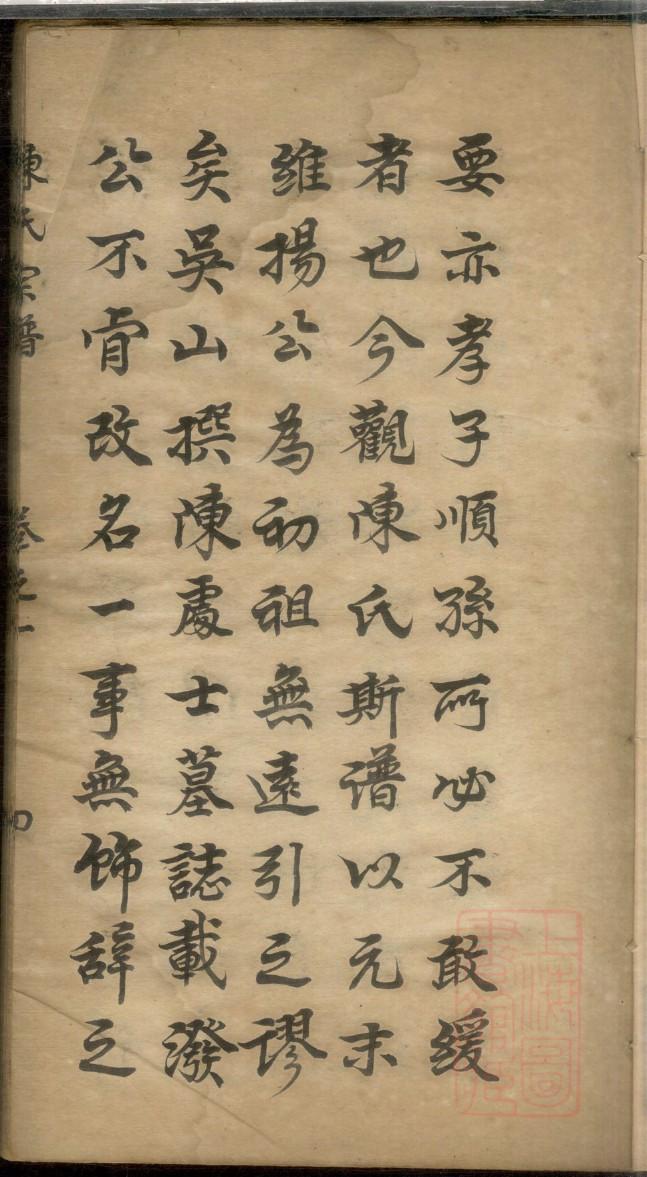 要亦孝子順孫所必不敢緩
者也今觀陳氏斯譜以元末
維揚公為初祖無遠引之謬
矣吳山撰陳處士墓誌載潑
公不肯改名一事無飾辞之
陳氏宗譜 卷之一